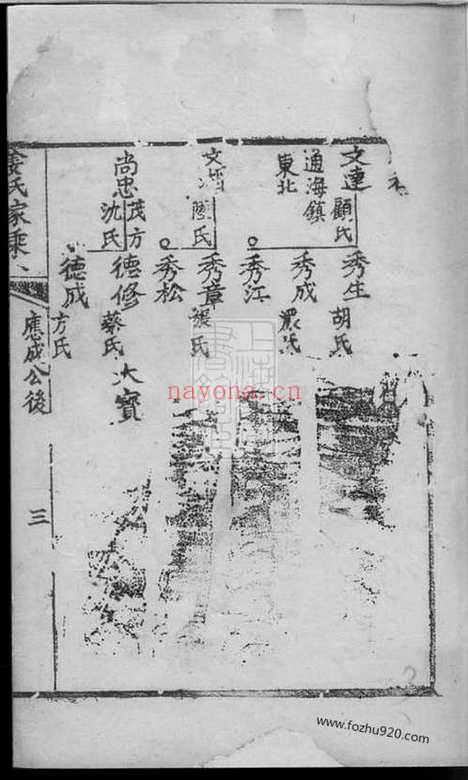 文達
顧氏
通海鎮
東北
秀生
胡氏
秀成
嚴氏
秀江
文
陳氏
秀章
張氏
秀松
尚忠
茂方
沈氏
德修
蔡氏
大寶
德成
方氏
氏家乘
應成公後
三
nayona.cn
www.fozhu920.com